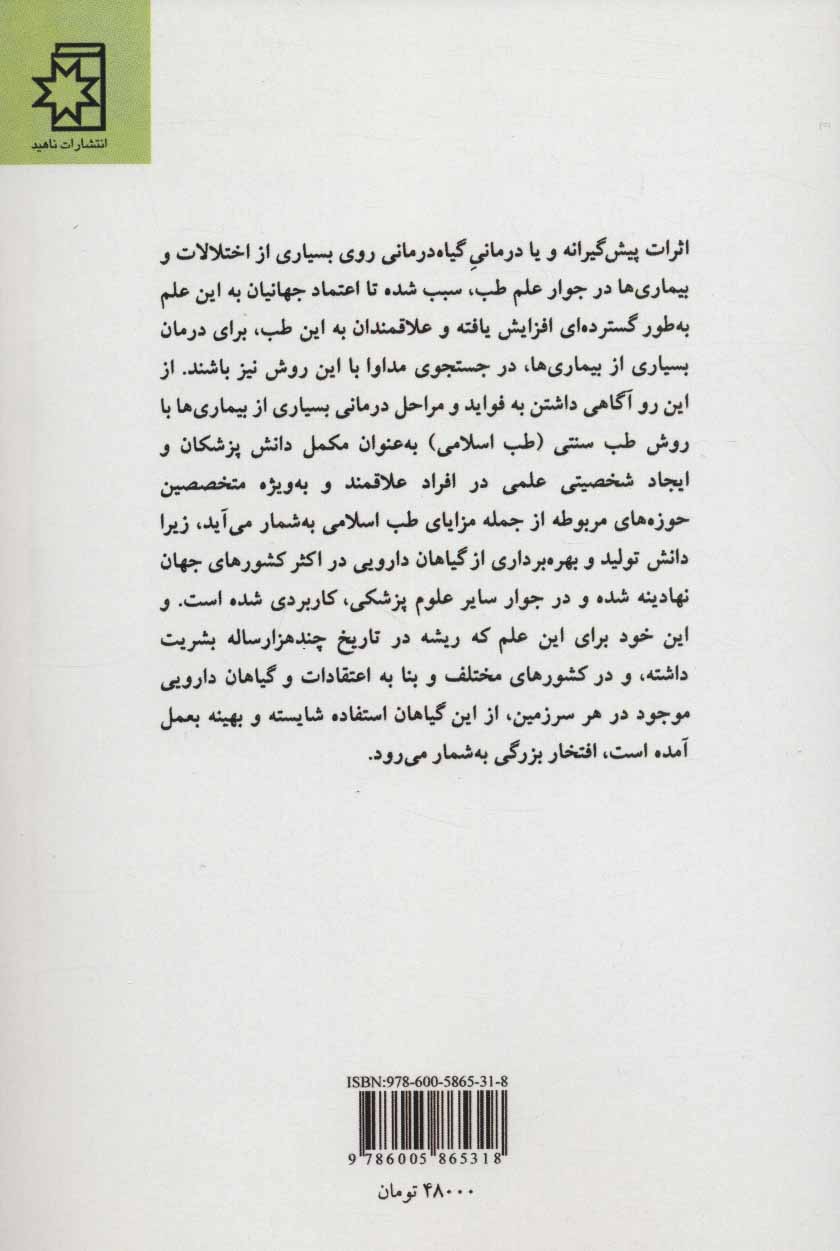 انتشارات ناهید
اثرات پیش‌گیرانه و یا درمانیِ گیاه‌درمانی روی بسیاری از اختلالات و
بیماری‌ها در جوار علم طب، سبب شده تا اعتماد جهانیان به این علم
به‌طور گسترده‌ای افزایش یافته و علاقمندان به این طب، برای درمان
بسیاری از بیماری‌ها، در جستجوی مداوا با این روش نیز باشند. از
این رو آگاهی داشتن به فواید و مراحل درمانی بسیاری از بیماری‌ها با
روش طب سنتی (طب اسلامی) به‌عنوان مکمل دانش پزشکان و
ایجاد شخصیتی علمی در افراد علاقمند و به‌ویژه متخصصین
حوزه‌های مربوطه از جمله مزایای طب اسلامی به‌شمار می‌آید، زیرا
دانش تولید و بهره‌برداری از گیاهان دارویی در اکثر کشورهای جهان
نهادینه شده و در جوار سایر علوم پزشکی، کاربردی شده است. و
این خود برای این علم که ریشه در تاریخ چندهزارساله بشریت
داشته، و در کشورهای مختلف و بنا به اعتقادات و گیاهان دارویی
موجود در هر سرزمین، از این گیاهان استفاده شایسته و بهینه بعمل
آمده است، افتخار بزرگی به‌شمار می‌رود.
ISBN:978-600-5865-31-8
9 786005 865318
۴۸۰۰۰ تومان